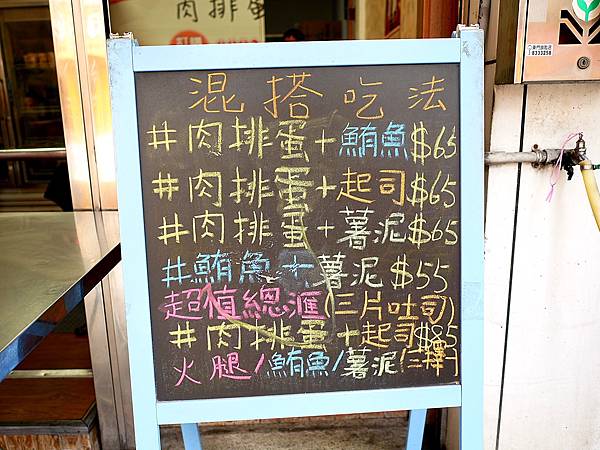 肉排蛋
東門旗艦店
8333258
混搭吃法
#肉排蛋+鮪魚$65
#肉排蛋+起司$65
#肉排蛋+薯泥$65
#鮪魚+薯泥$55
超值總滙(三片吐司)
#肉排蛋+起司$85
火腿/鮪魚/薯泥(三擇一)